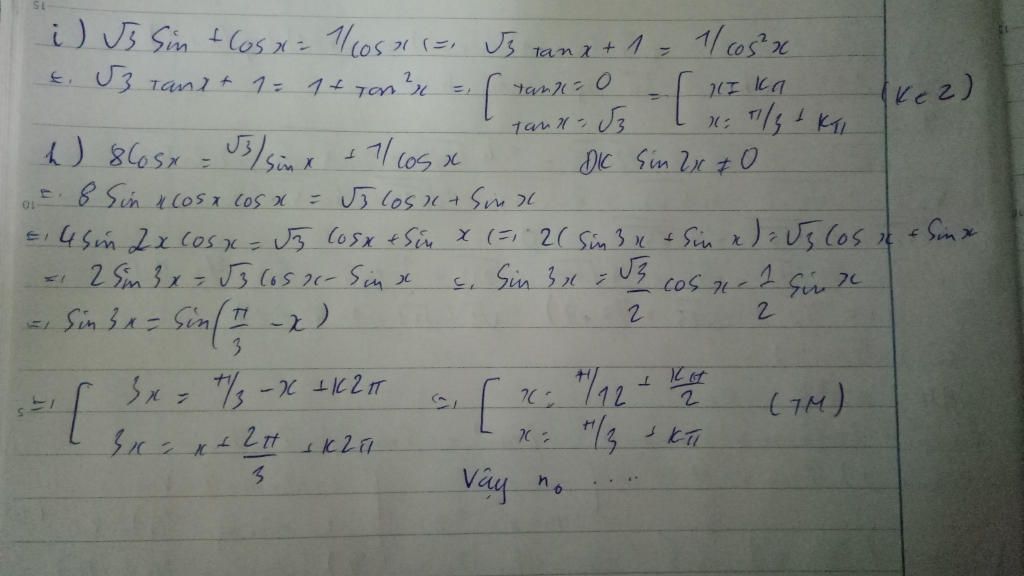 i) √3 Sin + Cosx = 1/cosx (=, √3 tanx + 1 = 1/cos²x
=, √3 tanx + 1 = 1 + tan²x =, [ tanx = 0 = [ x = kπ (k ∈ Z)
tanx = √3 x = π/3 + kπ
h) 8Cosx = √3/sinx + 1/cosx ĐK Sin2x ≠ 0
=, 8 Sinxcosxcosx = √3 Cosx + Sinx
=, 4Sin2xCosx = √3 Cosx + Sinx (=, 2(Sin3x + Sinx) = √3Cosx + Sinx
=, 2Sin3x = √3Cosx - Sinx =, Sin3x = √3/2 cosx - 1/2 Sinx
=, Sin3x = Sin(π/3 - x)
=, [ 3x = π/3 - x + k2π =, [ x = π/12 + kπ/2 (TM)
3x = x + 2π/3 + k2π x = π/3 + kπ
Vậy n₀ ....